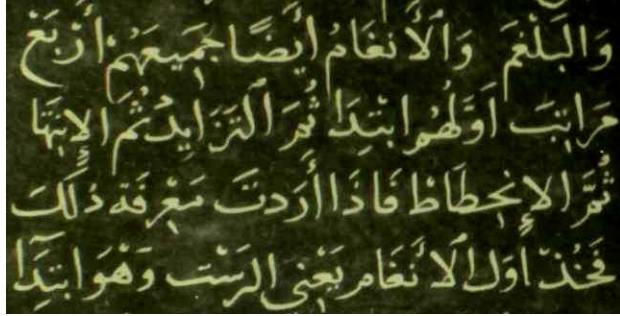 وَالبَلْغَمَ وَالْأَنغَامُ أَيضًا جَمِيعَهُمْ أَرْبَعْ
مَرَاتِبَ أَوَّلُهُم ابْتِدَا ثُمَّ التَزَايِدْ ثُمَّ الاِنتِهَا
ثُمَّ الاِنْحِطَاطْ فَاذَا أَرَدتَ مَعْرِفَة ذَلَكَ
فَخُذْ أَوَل الْأَنغَام يَعْنِى الرَسْت وَهْوَ ابتِدَآ